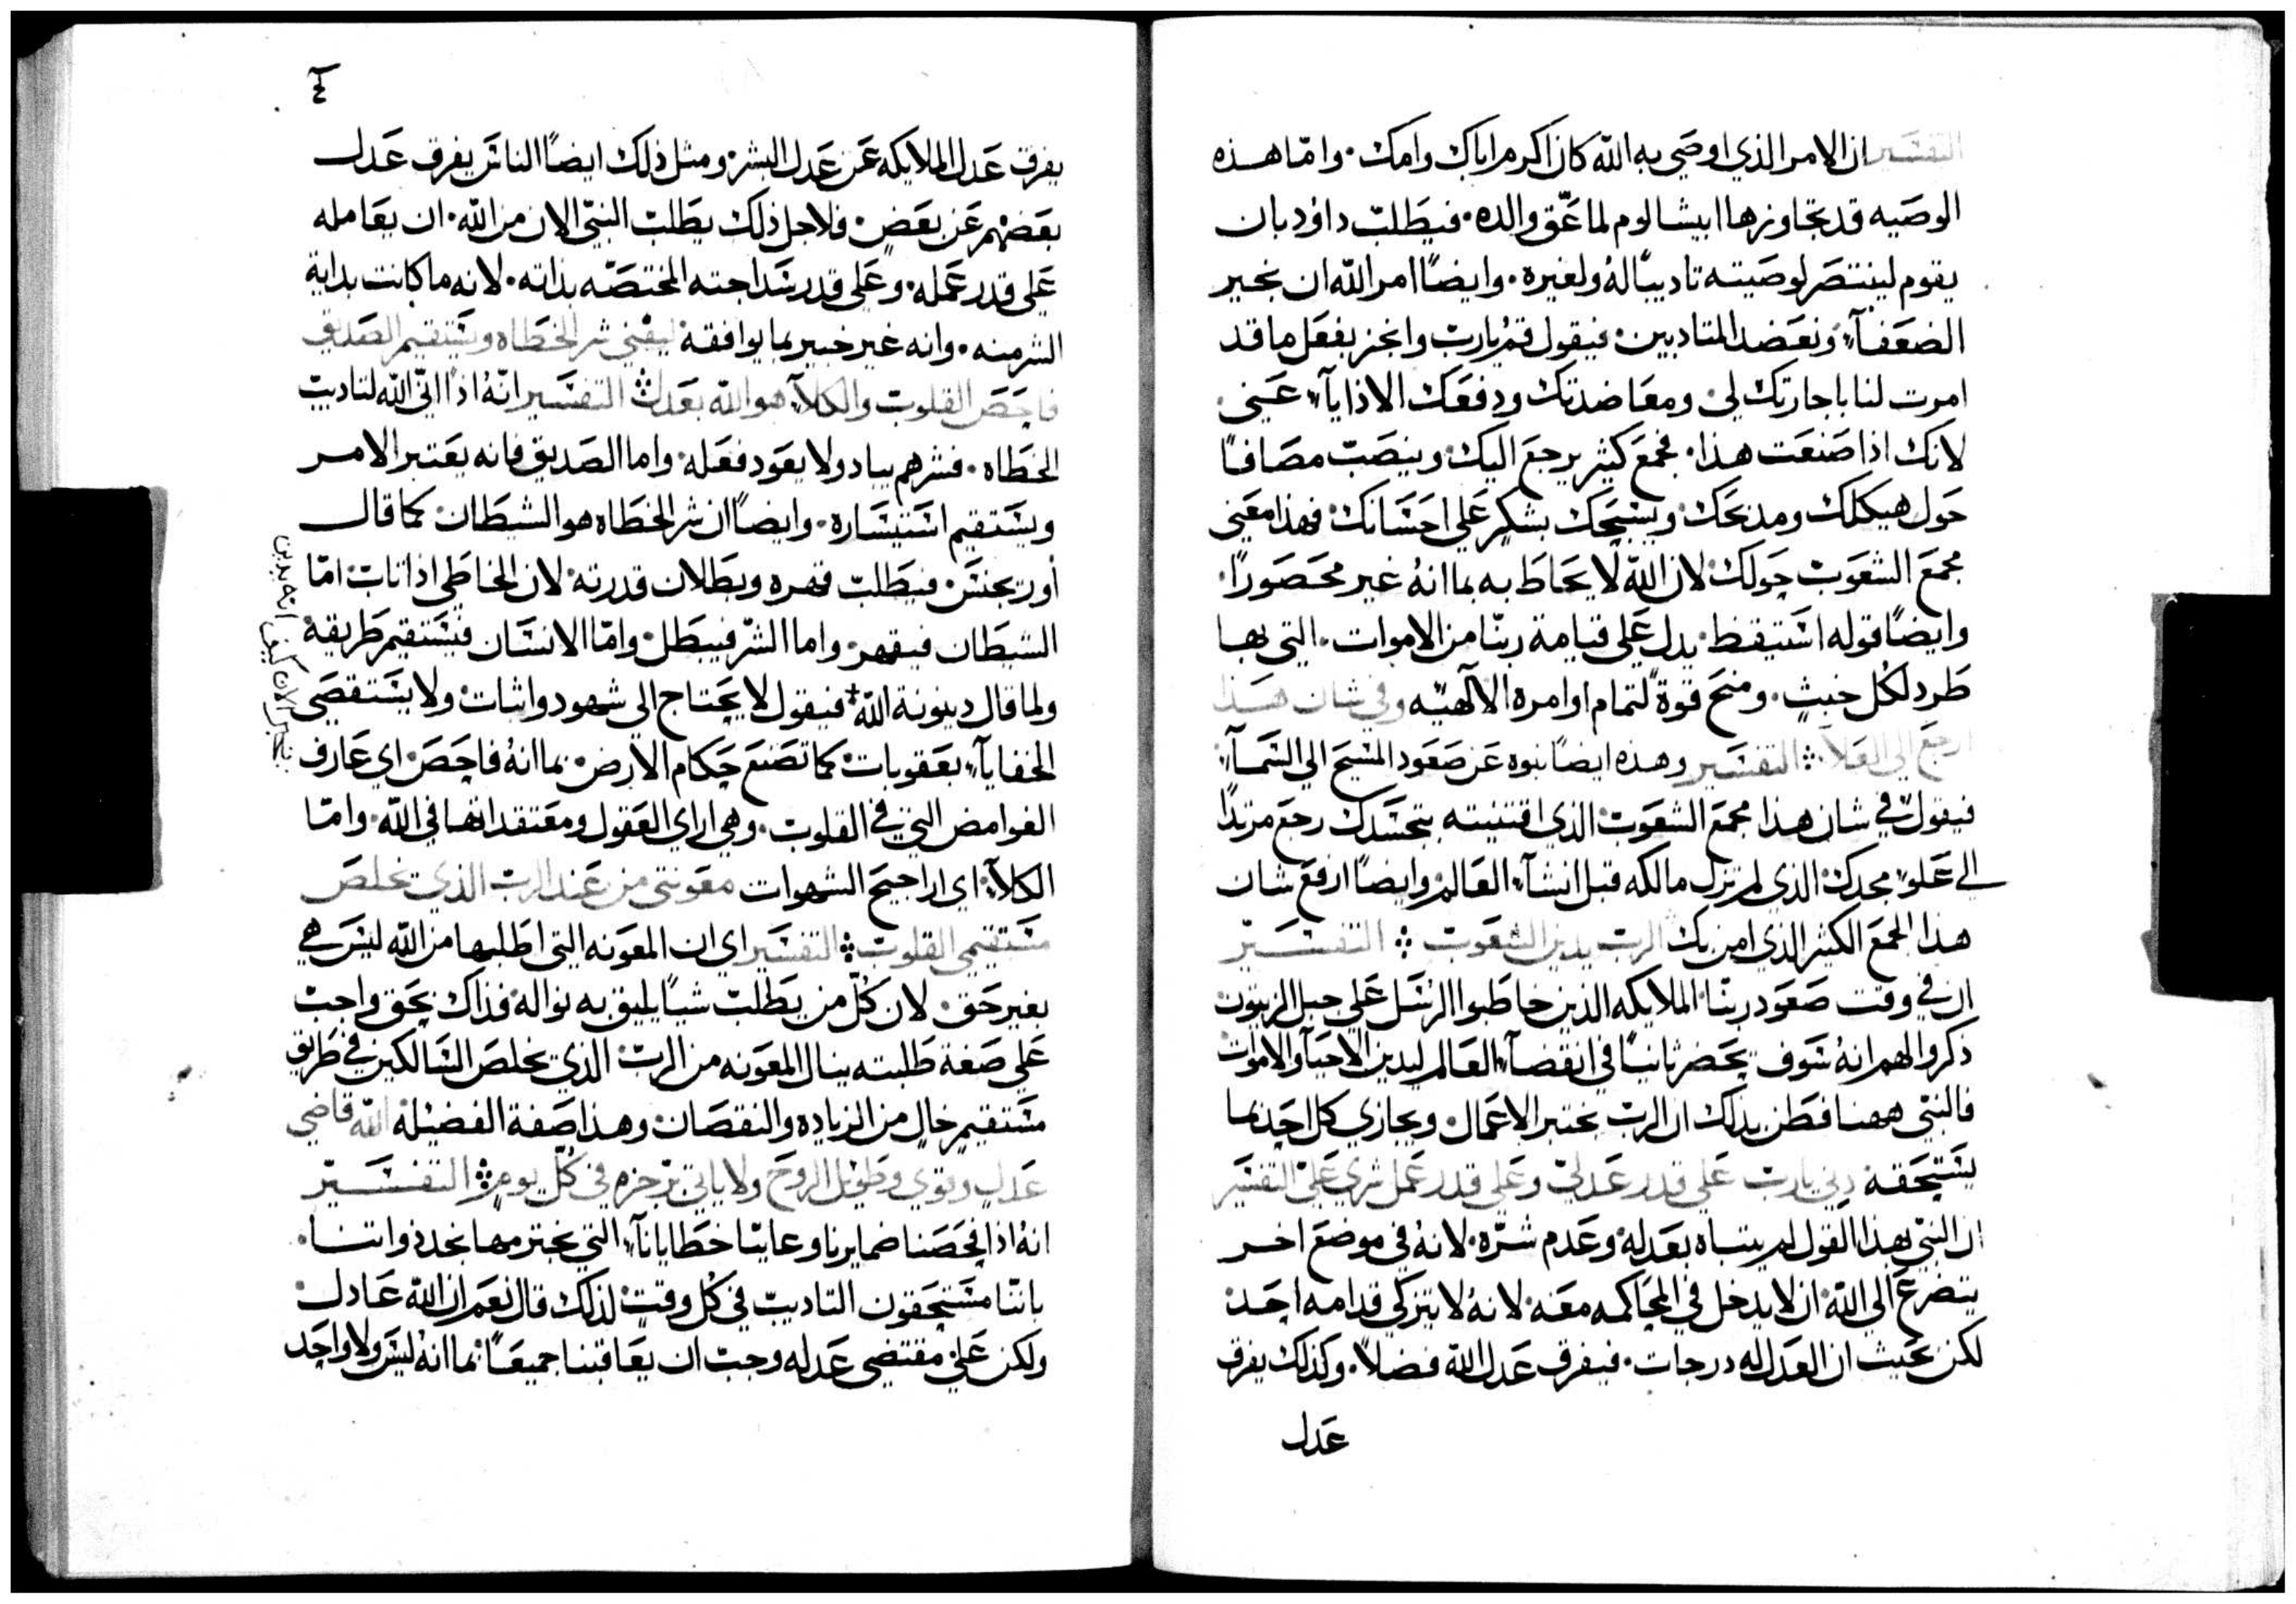 التفسير ان الامر الذي اوصي به الله كان اكرم اباك وامك. وامّا هذه
الوصيه قد تجاوزها ابيشالوم لما عّق والده. فيطلب داوُد بان
يقوم لينتصر لوصيته تاديبًا لهُ ولغيره. وايضًا امر الله ان نجير
الضعفآء ونعضد المتادبين. فيقول قمُ يارب وانجز بفعل ما قد
امرت لنا باجارتك لي. ومعاضدتك ودفعك الاذايآء عني.
لانك اذا صنعت هذا. فجمع كثير يرجع اليك. وينصبّ مصافًا
حول هيكلك ومذبحك. ويسبحك بشكرٍ علي احسانك. فهذا معني
مجمع الشعوب حولك. لان الله لا يحاط به بما انهُ غير محصورًا.
وايضًا قوله استيقظ. يدل علي قيامة ربّنا من الاموات. التي بها
طرد لكُل خبثٍ. ومنح قوة لتمام اوامره الالٓهيّه وفي شان هذا
ارجع الي العلآء. التفسير وهذه ايضًا نبوه عن صعود المسيح الي السمآء.
فيقول في شان هذا مجمع الشعوب الذي اقتنيته بتجسّدك رجع مرتدًا
الي علوّ مجدك. الذي لم تزل مالكه قبل انشآء العالم. وايضًا ارفع شان
هذا الجمع الكثير الذي امن بك الرب يدين الشعوب. التفسير
ان في وقت صعود ربنّا. الملايكه الذين خاطبوا الرسُل علي جبل الزيتون
ذكروا لهم انهُ سوف يحضر ثانيًا في انقضآء العالم ليدين الاحيآء والاموات
فالنبيّ ههنا فطن بذلك ان الرب يختبر الاعمال. ويجازي كل احدٍ بما
يستحقه دِني يارب علي قدر عدليّ وعلي قدر عمل شري عليّ التفسير
ان النبيّ بهذا القول لم يتباه بعدله. وعدم شرّه. لانهُ في موضع اخر
يتضرع الي الله. ان لا يدخل في المحاكمه معه. لانهُ لا يتزكي قدامه احد.
لكن بحيث ان العدل له درجات. فيفرق عدل الله فضلاً. وكذلك يفرق
عدل
يفرق عدل الملايكه عن عدل البشر. ومثل ذلك ايضًا الناس يفرق عدل
بعضهم عن بعضٍ. فلاجل ذلك يطلب النبيّ الان من الله. ان يعامله
علي قدر عمله. وعلي قدر سداجته المختصّه بذاته. لانه ما كانت بداية
الشر منه. وانه غير خبير بما يوافقه. ليفني شر الخطاه ويستقيم الصديق
فاحص القلوب والكلآ هو الله بعدل. التفسير انّهُ اذا اتي الله لتاديب
الخطاه. فشرهم يباد ولا يعود فعله. واما الصديق فانه يعتبر الامر
ويستقيم استيساره. وايضًا ان شر الخطاه هو الشيطان. كما قال
أوريجنس. فيطلب قهره وبطلان قدرته. لان الخاطي اذا تاب. امّا
الشيطان فيقهر. واما الشرّ فيبطل. وامّا الانسان فيستقيم طريقهُ
ولما قال دينونة الله + فيقول لا يحتاج الي شهود واثبات. ولا يستقصي
الخفايآء بعقوبات. كما تصنع حكام الارض. بما انهُ فاحص. اي عارف
الغوامض التي في القلوب. وهي اراي العقول ومعتقداتها في الله. وامّا
الكلآء. اي اراجيح الشهوات معونتي من عند الرب الذي يخلص
مستقيمي القلوب. التفسير اي ان المعونه التي اطلبها من الله ليس هي
بغير حق. لان كُلّ من يطلب شيًا يليق به نواله. فذاك بحق واجب
علي صفة طلبته ينال المعونه من الرب. الذي يخلص السالكين في طريق
مستقيمٍ خالٍ من الزياده والنقصان. وهذا صفة الفضيلة الله قاضي
عدلٍ وقوي وطويل الروح ولا ياتي برجزه في كُلّ يومٍ. التفسير
انهُ اذا فحصنا ضمايرنا وعاينّا خطايانآ. التي نجترمها نجد ذواتنا.
باننّا مستحقون التاديب في كُل وقتٍ لذلك قال نعم ان الله عادل.
ولكن علي مقتضي عدله وجب ان يعاقبنا جميعًا. بما انهُ ليس ولا واحد